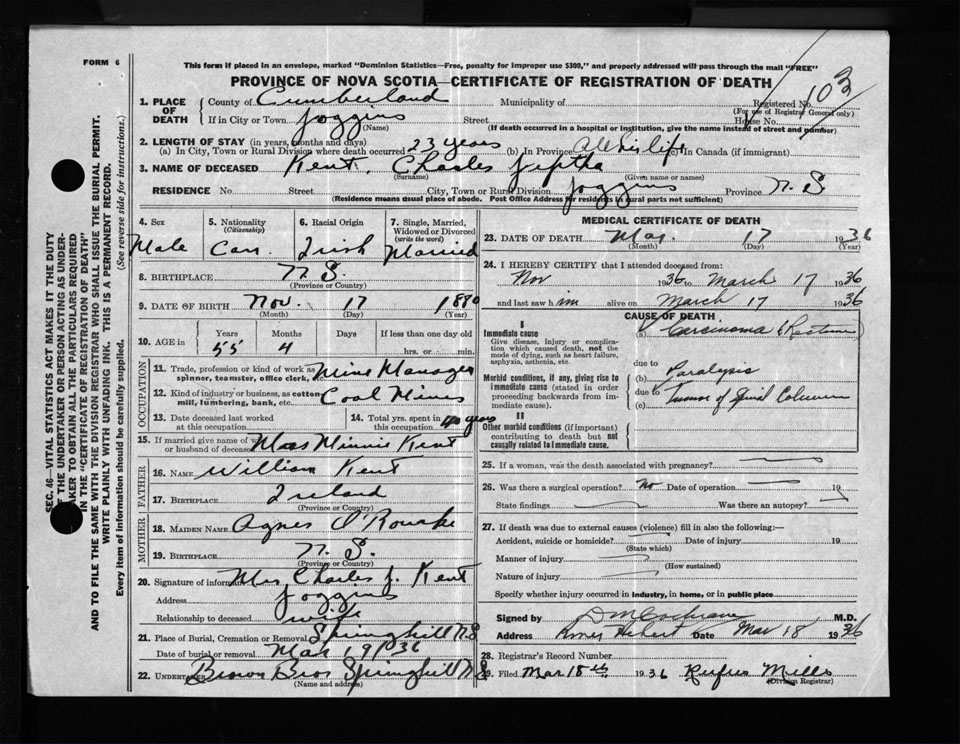 FORM 6
This form if placed in an envelope, marked "Dominion Statistics—Free, penalty for improper use $300," and properly addressed will pass through the mail "FREE"
PROVINCE OF NOVA SCOTIA—CERTIFICATE OF REGISTRATION OF DEATH
103
1. PLACE OF DEATH County of Cumberland Municipality of Registered No. (For use of Registrar General only)
If in City or Town Joggins (Name) Street House No.
(If death occurred in a hospital or institution, give the name instead of street and number)
2. LENGTH OF STAY (in years, months and days)
(a) In City, Town or Rural Division where death occurred 23 years (b) In Province all his life (c) In Canada (if immigrant)
3. NAME OF DECEASED Kent, Charles Jeptha
(Surname) (Given name or names)
RESIDENCE No. Street City, Town or Rural Division Joggins Province N. S
(Residence means usual place of abode. Post Office Address for residents in rural parts not sufficient)
4. Sex Male
5. Nationality (Citizenship) Can.
6. Racial Origin Irish
7. Single, Married, Widowed or Divorced (write the word) Married
8. BIRTHPLACE N. S.
(Province or Country)
9. DATE OF BIRTH Nov. 17 1880
(Month) (Day) (Year)
10. AGE in Years 55 Months 4 Days If less than one day old hrs. or min.
OCCUPATION
11. Trade, profession or kind of work as spinner, teamster, office clerk, Mine Manager
12. Kind of industry or business, as cotton mill, lumbering, bank, etc. Coal Mines
13. Date deceased last worked at this occupation
14. Total yrs. spent in this occupation 40 years
15. If married give name of wife or husband of deceased Mrs Minnie Kent
FATHER
16. NAME William Kent
17. BIRTHPLACE Ireland
(Province or Country)
MOTHER
18. MAIDEN NAME Agnes O'Rourke
19. BIRTHPLACE N. S.
(Province or Country)
20. Signature of informant Mrs Charles J. Kent
Address Joggins
Relationship to deceased wife
21. Place of Burial, Cremation or Removal Springhill N.S
Date of burial or removal Mar 19/36
22. UNDERTAKER Brown Bros Springhill N.S
(Name and address)
MEDICAL CERTIFICATE OF DEATH
23. DATE OF DEATH Mar. 17 1936
(Month) (Day) (Year)
24. I HEREBY CERTIFY that I attended deceased from:
Nov 1936 to March 17 1936
and last saw him alive on March 17 1936
CAUSE OF DEATH
I
Immediate cause
Give disease, injury or complication which caused death, not the mode of dying, such as heart failure, asphyxia, asthenia, etc.
(a) Carcinoma (Rectum)
due to
Morbid conditions, if any, giving rise to immediate cause (stated in order proceeding backwards from immediate cause).
(b) Paralysis
due to
(c) Tumor of Spinal Column
II
Other morbid conditions (if important) contributing to death but not causally related to immediate cause.
25. If a woman, was the death associated with pregnancy?
26. Was there a surgical operation? no Date of operation 19
State findings Was there an autopsy?
27. If death was due to external causes (violence) fill in also the following:—
Accident, suicide or homicide? Date of injury 19
(State which)
Manner of injury
(How sustained)
Nature of injury
Specify whether injury occurred in industry, in home, or in public place
Signed by D M Cochrane M.D.
Address River Hebert Date Mar 18 1936
28. Registrar's Record Number
29. Filed Mar 18th 1936 Rufus Mills
(Division Registrar)
SEC. 46—VITAL STATISTICS ACT MAKES IT THE DUTY
OF THE UNDERTAKER OR PERSON ACTING AS UNDER-
TAKER TO OBTAIN ALL THE PARTICULARS REQUIRED
IN THE "CERTIFICATE OF REGISTRATION OF DEATH"
AND TO FILE THE SAME WITH THE DIVISION REGISTRAR WHO SHALL ISSUE THE BURIAL PERMIT.
WRITE PLAINLY WITH UNFADING INK. THIS IS A PERMANENT RECORD.
Every item of information should be carefully supplied. (See reverse side for instructions.)